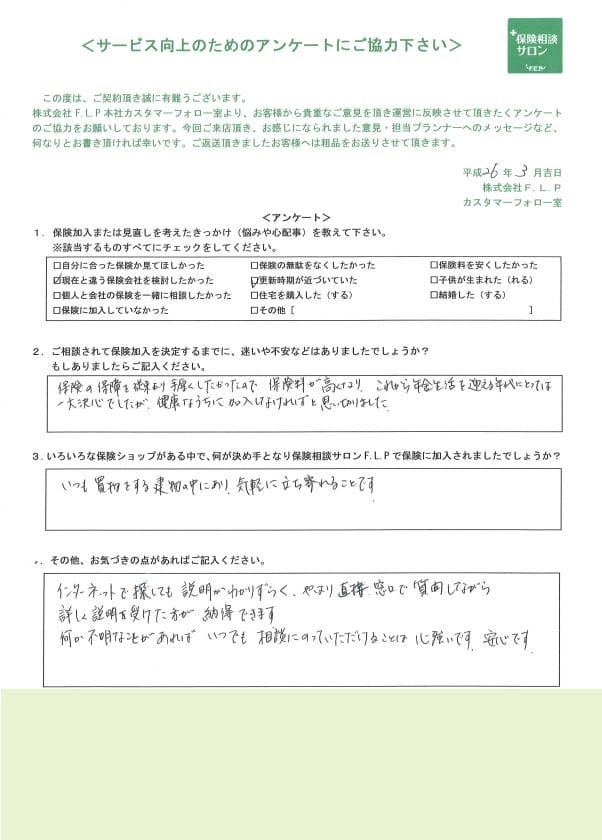 ＜サービス向上のためのアンケートにご協力下さい＞
保険相談
サロン
F.L.P
この度は、ご契約頂き誠に有難うございます。
株式会社F.L.P本社カスタマーフォロー室より、お客様から貴重なご意見を頂き運営に反映させて頂きたくアンケート
のご協力をお願いしております。今回ご来店頂き、お感じになられました意見・担当プランナーへのメッセージなど、
何なりとお書き頂ければ幸いです。ご返送頂きましたお客様へは粗品をお送りさせて頂きます。
平成26年3月吉日
株式会社F.L.P
カスタマーフォロー室
＜アンケート＞
1．保険加入または見直しを考えたきっかけ（悩みや心配事）を教えて下さい。
※該当するものすべてにチェックをしてください。
□自分に合った保険か見てほしかった □保険の無駄をなくしたかった □保険料を安くしたかった
☑現在と違う保険会社を検討したかった ☑更新時期が近づいていた □子供が生まれた（れる）
□個人と会社の保険を一緒に相談したかった □住宅を購入した（する） □結婚した（する）
□保険に加入していなかった □その他［ ］
2．ご相談されて保険加入を決定するまでに、迷いや不安などはありましたでしょうか？
もしありましたらご記入ください。
保険の保障を従来より手厚くしたかったので 保険料が高くなり、これから年金生活を迎える年代にとっては
一大決心でしたが、健康なうちに加入しなければと思い切りました
3．いろいろな保険ショップがある中で、何が決め手となり保険相談サロンF.L.Pで保険に加入されましたでしょうか？
いつも買物をする建物の中にあり、気軽に立ち寄れることです
．その他、お気づきの点があればご記入ください。
インターネットで探しても 説明がわかりずらく、やはり直接窓口で質問しながら
詳しく説明を受けた方が 納得できます
何か不明なことがあれば いつでも 相談にのっていただけることは 心強いです、安心です。